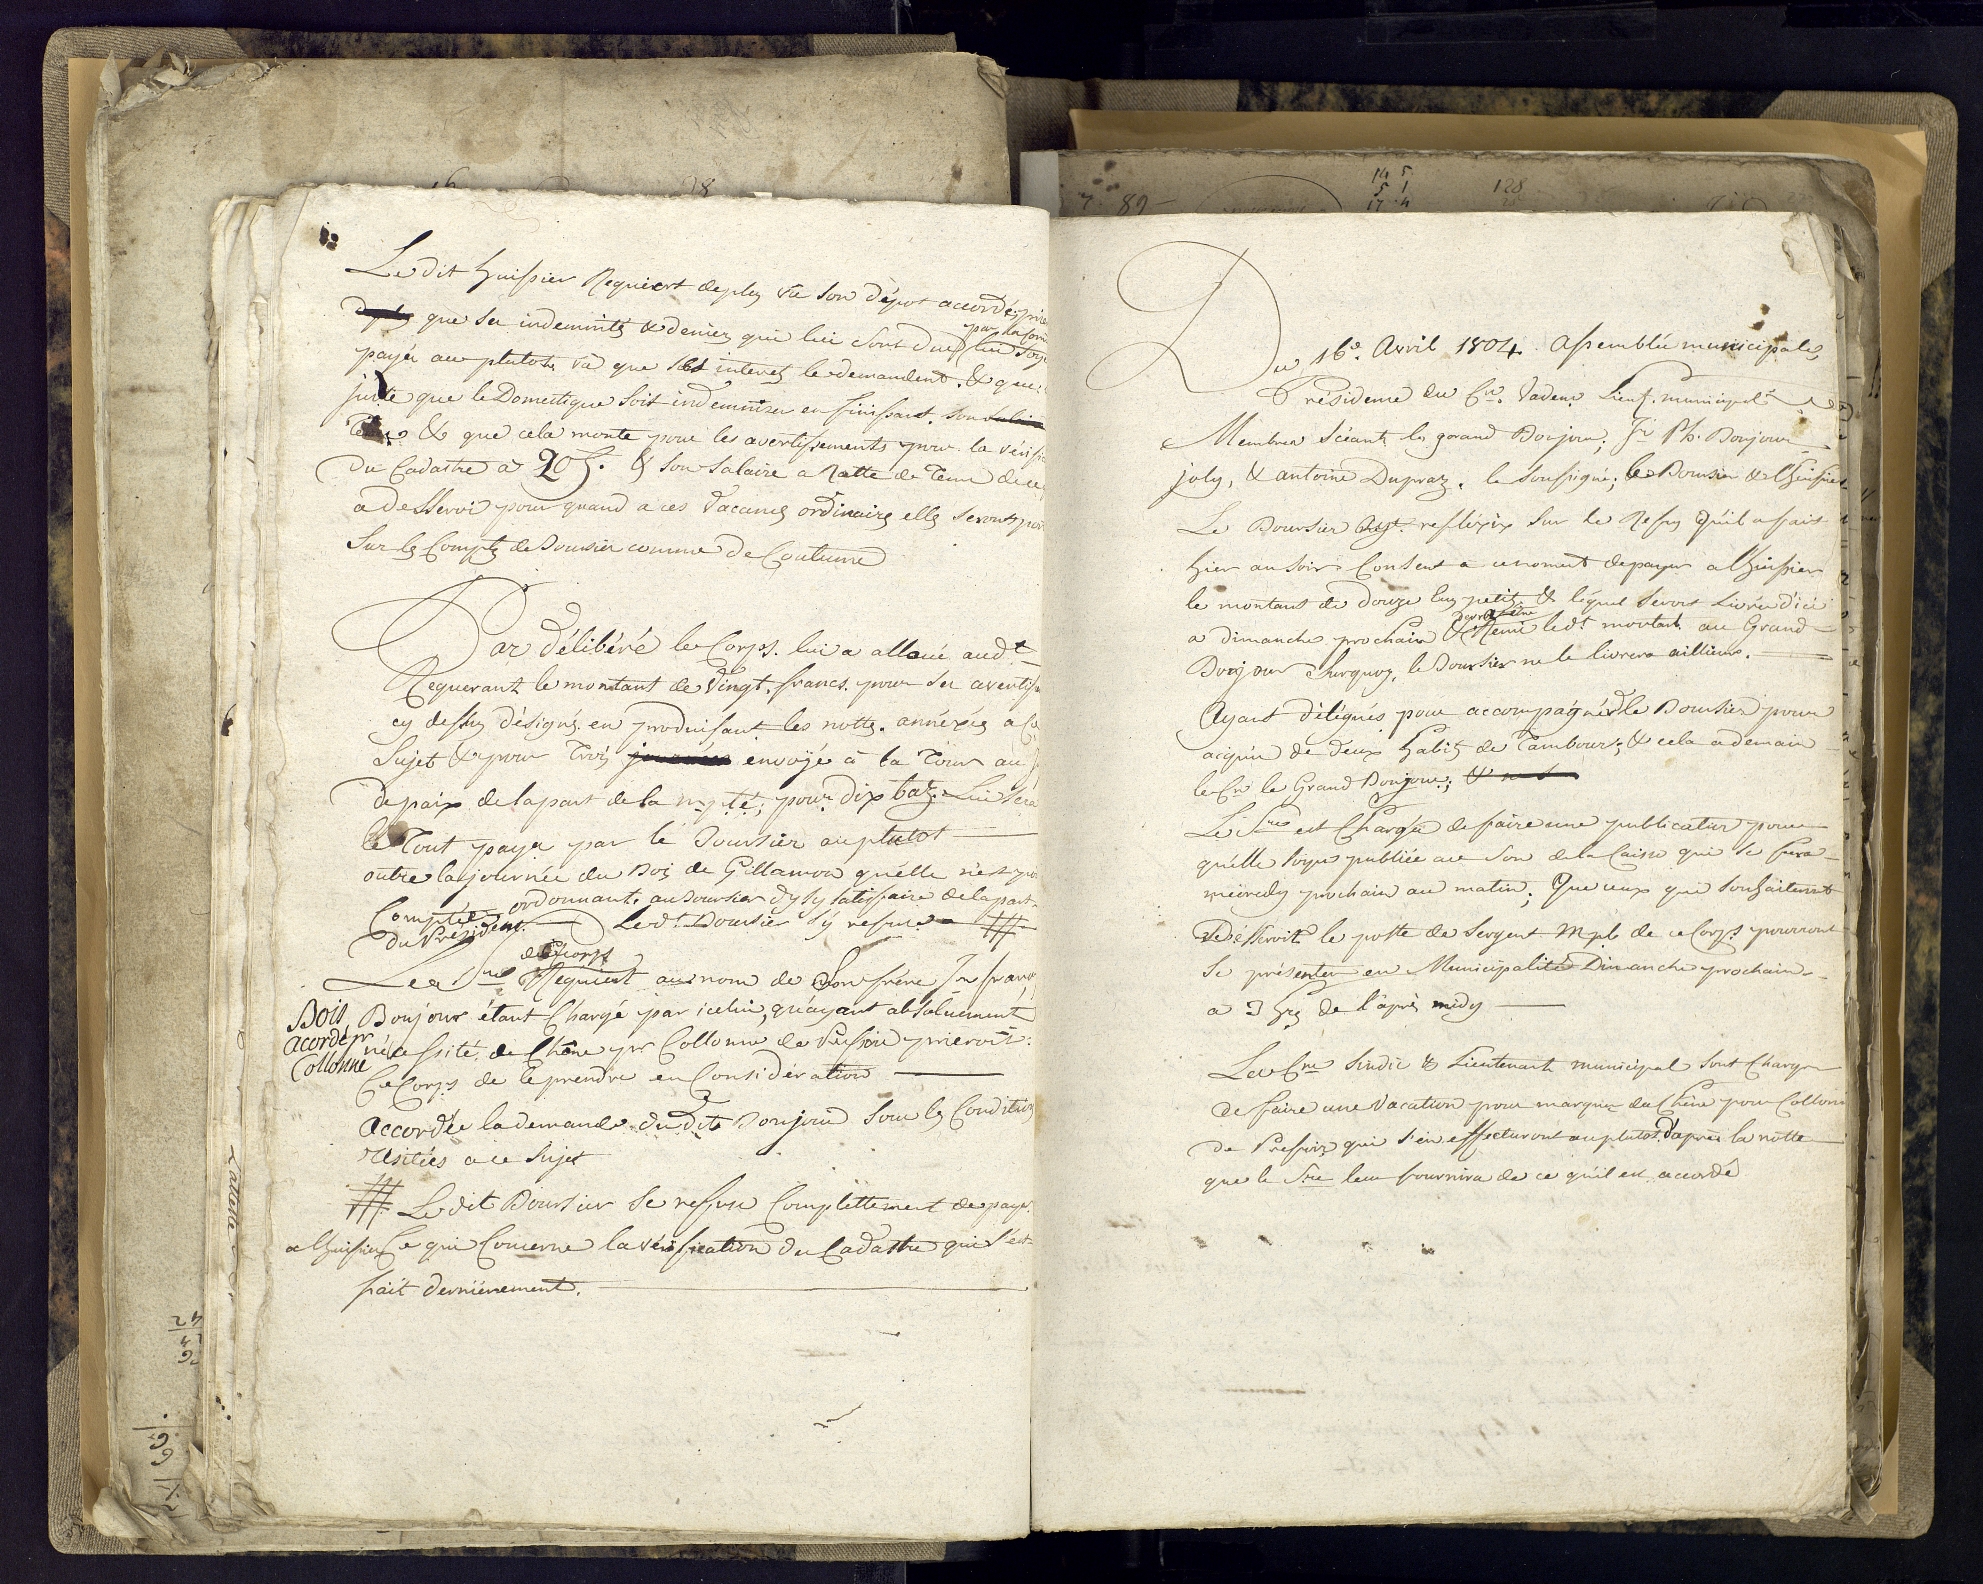 Le dit huissier Requiert de plus vu son dépot accordé,
que ses indemnités & deniers qui lui sont dues lui soye
par la
payés au plutot, vu que ses interets le demandent. & que
juste que le Domestique soit indemniser en finissant son
Terme & que cela monte pour les avertissements pour la
du Cadastre à 20 f. & son Salaire a Ratte de Tems de ce
a desservi pour quand a ces Vacances ordinaires elles seront
Sur les Comptes de Boursier comme de Coutume
Par délibéré le Corps. lui a alloué audt.
Requerant le montant de Vingt francs. pour ses
cy dessus désignés en produisant les nottes annéxées a
Sujet & pour Trois envoyé à la Tour au
de paix de la part de la mpté; pour dix batz. Lui sera
le Tout payer par le Boursier au plutot
outre la journée du Bois de Gillamon quélle n'est
Comptée ordonnant au Boursier d'y satisfaire de la part
du Président. Le dt. Boursier s'y refuse #
de Ce Corps
Le Sre. Requiert au nom de Son frére Jn franç
Bois
acordé pr
Collonne
Bonjour étant Chargé par icelui, qu'ayant absoluement
nécessité de Chêne pr Collonne de Pressoir prieroit
Ce Corps de le prendre en Considération
Accordée la demande du dit Bonjour sous les Conditions
Usitées a ce Sujet
# Le dit Boursier se reffuse Complettement de payer
a l'huissier Ce qui Concerne la vérification du Cadastre qui s'est
fait dernièrement.
Du 16e. Avril 1804 Assemblée municipale
Présidence du Cn. Vadens Lieut. municipal
Membres Scéants les grand Bonjour; Jn Ph. Bonjour
joly, & antoine Dupraz. le soussigné; le Boursier & l'huissier
Le Boursier ayt. refléxis sur le Refus qu'il a fait
hier au soir Consent a ce moment de payer a l'huissier
le montant de Douze Luz petits & léquel seront Livrés d'ici
a dimanche prochain & Remi le dt. montant au Grand
devra être
Bonjour le Boursier ne le livrera ailleurs.
Ayant délégués pour accompagner le Boursier pour
aquérir de deux habits de Tambours; & cela a demain
le Cn le Grand Bonjour;
Le Sre est Chargés de faire une publication pour
quélle soye publiée au Son de la Caisse qui se fera
mécredy prochain au matin; Que ceux qui souhaiteront
désservir le poste de Sergent Mpl. de ce Corps pourront
se présenter en Municipalité Dimanche prochain
a 3 hrs de l'aprés midy
Les Cns Sindic & Lieutenant municipal sont Charges
de faire une Vacation pour marquer du Chêne pour Collonne
de Pressoirs qui s'en effectueront au plutot, d'après la notte
que le Sre leur fournira de ce qu'il est accordé